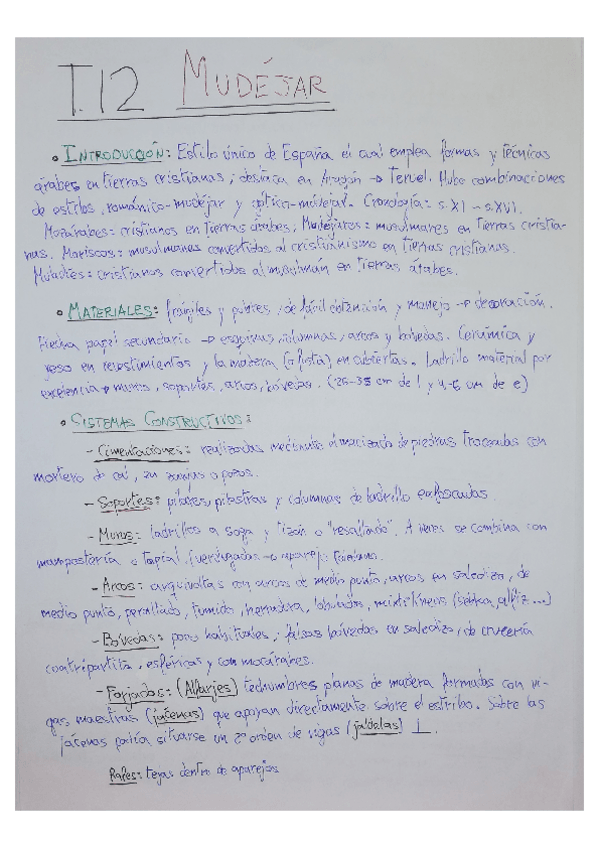 T.12 MUDÉJAR
• INTRODUCCIÓN: Estilo único de España el cual emplea formas y técnicas
árabes en tierras cristianas, destaca en Aragón → Teruel. Hubo combinaciones
de estilos, románico-mudéjar y gótico-mudéjar. Cronología: s.XI - s.XVI.
Mozárabes: cristianos en tierras árabes, Mudéjares: musulmanes en tierras cristia-
nas. Moriscos: musulmanes convertidos al cristianismo en tierras cristianas.
Muladíes: cristianos convertidos al musulmán en tierras árabes.
• MATERIALES: frágiles y pobres, de fácil obtención y manejo → decoración.
Piedra papel secundario → esquinas, columnas, arcos y bóvedas. Cerámica y
yeso en revestimientos y la madera en cubiertas. Ladrillo material por
excelencia → muros, soportes, arcos, bóvedas. (26-35 cm de l y 4-5 cm de e)
• SISTEMAS CONSTRUCTIVOS:
- Cimentaciones: realizadas mediante el macizado de piedras troceadas con
mortero de cal, en zanjas o pozos.
- Soportes: pilares, pilastras y columnas de ladrillo enfoscadas.
- Muros: ladrillos a soga y tizón o "resaltado". A veces se combina con
mampostería o tapial. (verdugadas → aparejo toledano.
- Arcos: arquivoltas con arcos de medio punto, arcos en saledizo, de
medio punto, peraltado, túmido, herradura, lobulados, mixtilíneos (sebka, alfiz...)
- Bóvedas: poco habituales, falsas bóvedas en saledizo, de crucería
cuatripartita, esféricas y con mocárabes.
- Forjados: (Alfarjes) techumbres planas de madera formadas con vi-
gas maestras (jácenas) que apoyan directamente sobre el estribo. Sobre las
jácenas podía situarse un 2º orden de vigas (jaldetas)
Rafes: tejas dentro de aparejos